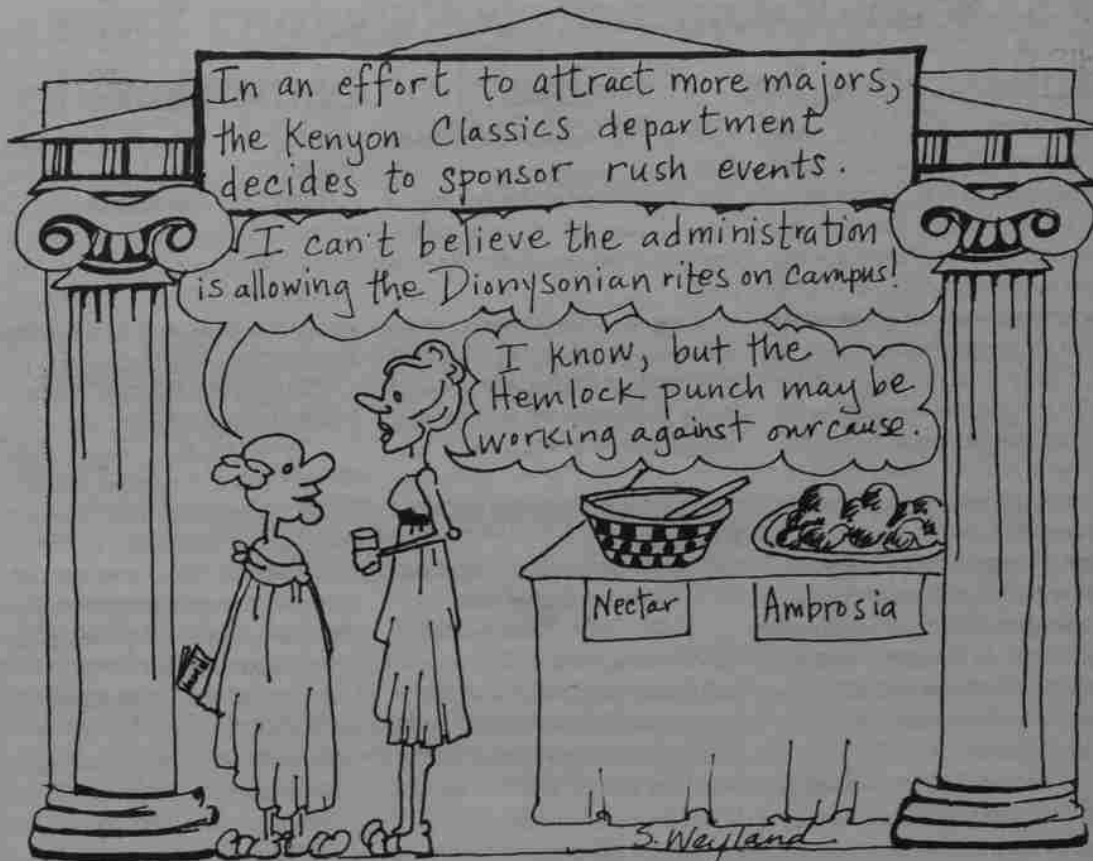 In an effort to attract more majors,
the Kenyon Classics department
decides to sponsor rush events.
I can't believe the administration
is allowing the Dionysonian rites on campus!
I know, but the
Hemlock punch may be
working against our cause.
Nectar
Ambrosia
S. Weyland